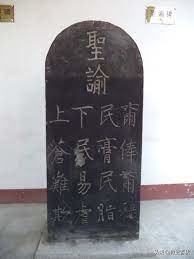 聖諭
爾俸爾祿
民膏民脂
下民易虐
上蒼難欺